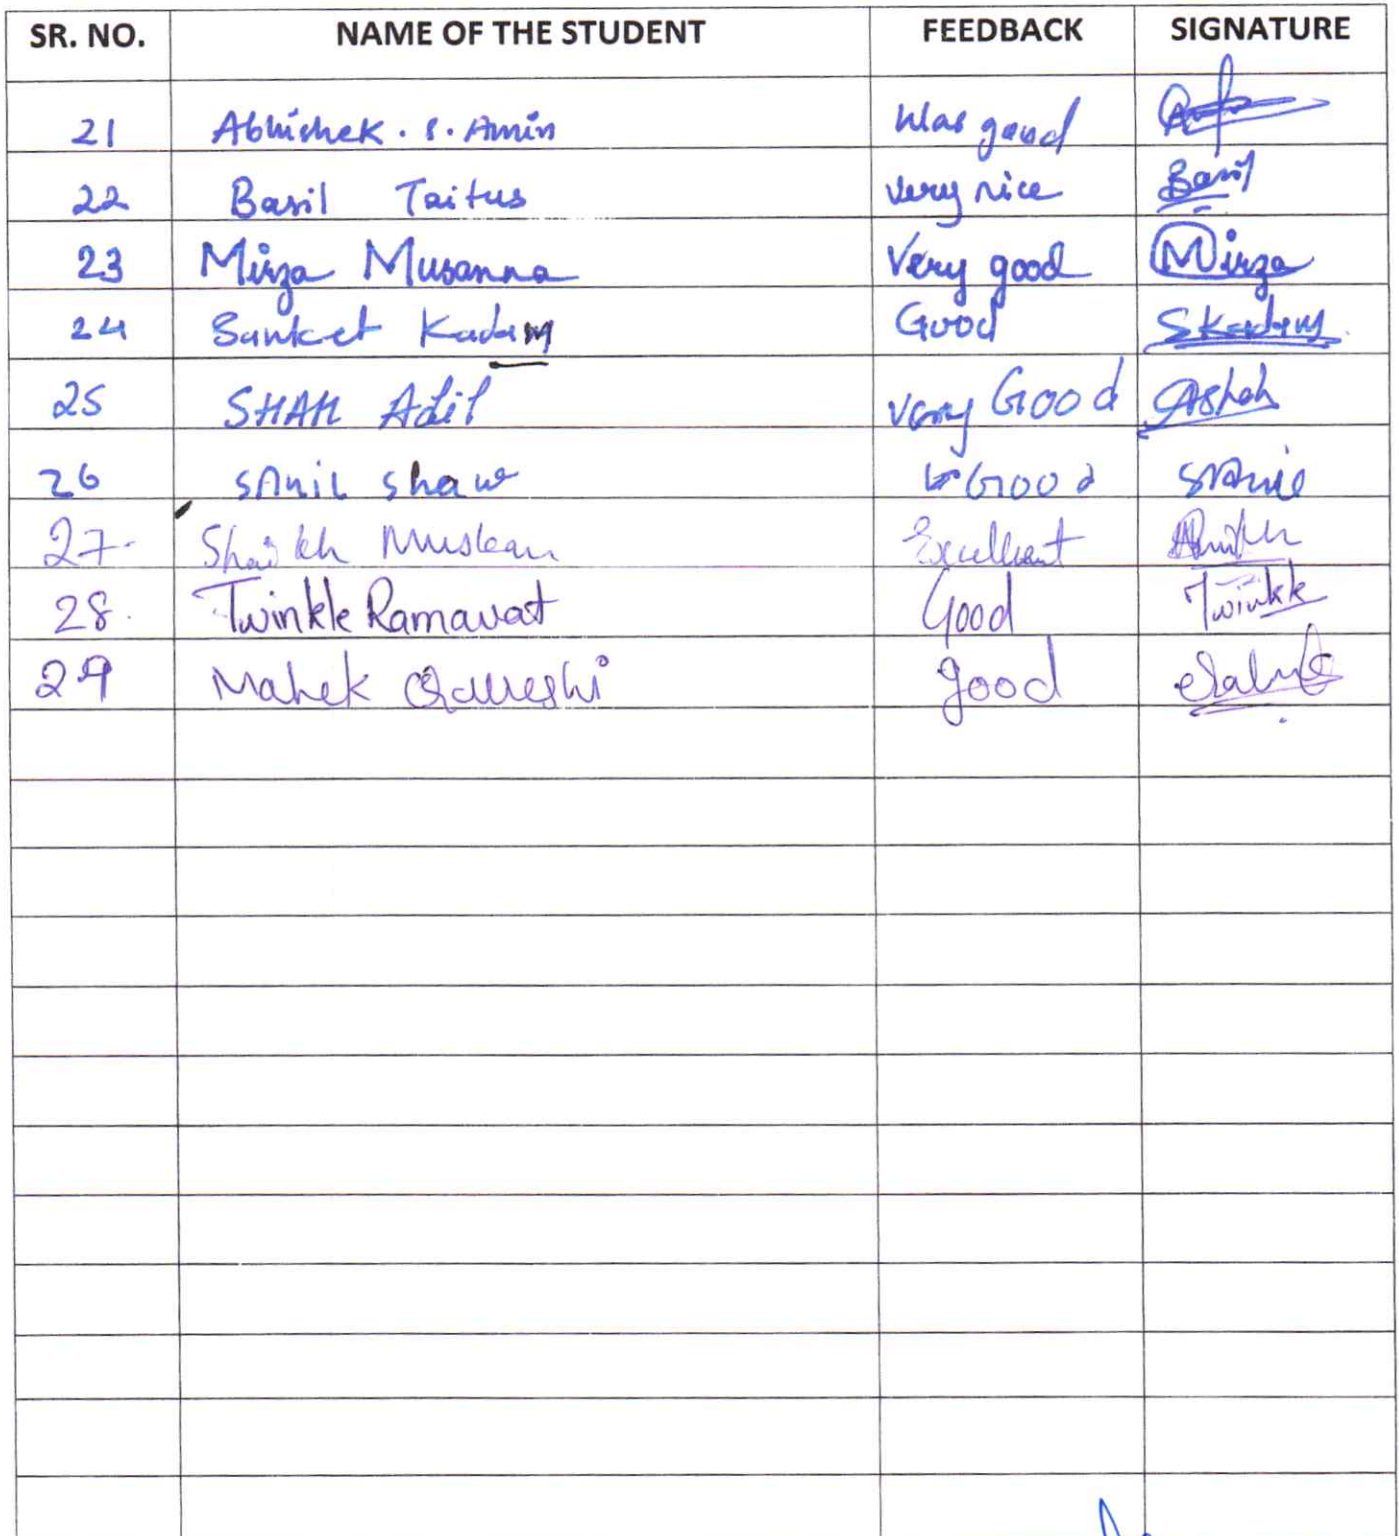 SR. NO. NAME OF THE STUDENT FEEDBACK SIGNATURE
21 Abhishek . S. Amin Was good
22 Basil Taitus Very nice Basil
23 Mirza Musanna Very good Mirza
24 Sanket Kadam Good SKadam
25 SHAH Adil Very Good AShah
26 SAnil Shaw Good SAnil
27. Shaikh Muskan Excellent
28. Twinkle Ramavat Good Twinkle
29 Mahek Qaureshi good